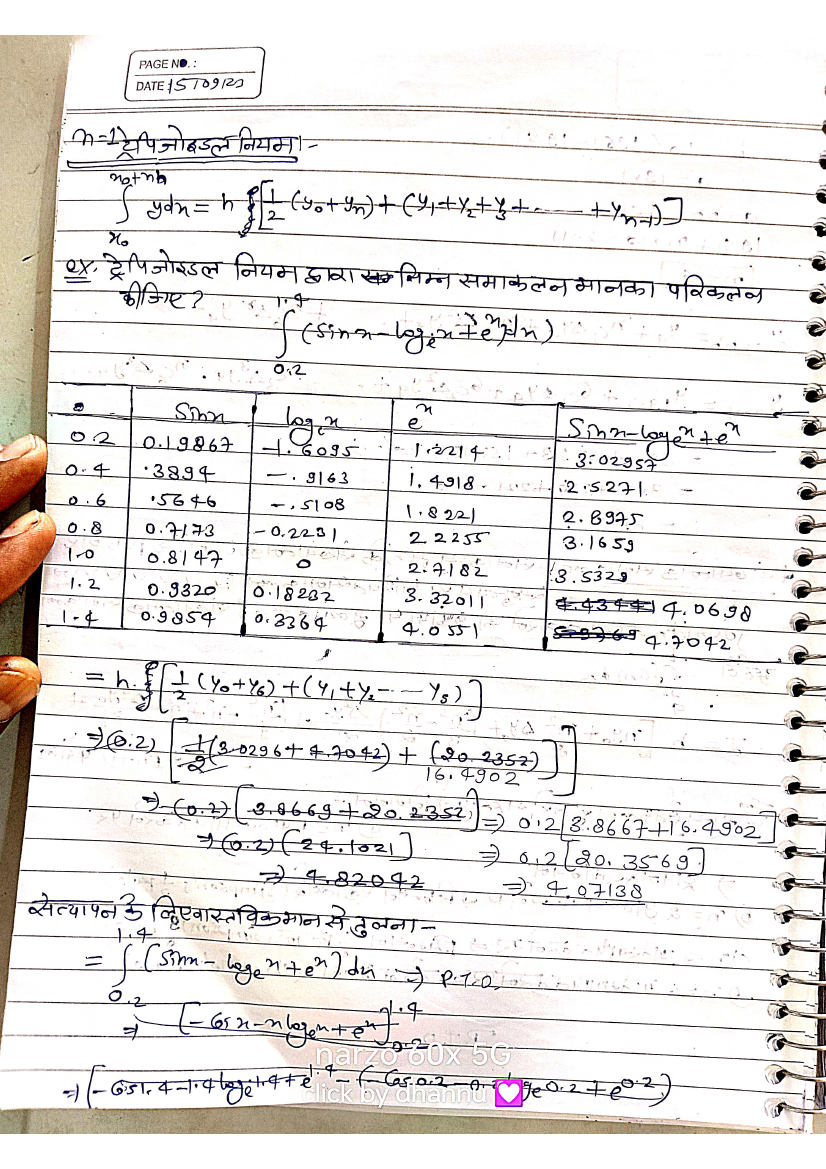 PAGE NO. :
DATE 15/09/23
n=1 ट्रेपिजोइडल नियम।-
x₀+nh
∫ ydx = h {[1/2 (y₀+yn) + (y₁+y₂+y₃+ ------ +yn-1)]
x₀
ex. ट्रेपिजोइडल नियम द्वारा निम्न समाकलन मान का परिकलन
कीजिए?
1.4
∫ (sinx-logₑx+eˣ)dx)
0.2
Sinx logₑx eˣ Sinx-logₑx+eˣ
0.2 0.19867 -1.6095 1.2214 3.02957
0.4 .3894 -.9163 1.4918 2.5271
0.6 .5646 -.5108 1.8221 2.8975
0.8 0.7173 -0.2231 2.2255 3.1659
1.0 0.8147 0 2.7182 3.5329
1.2 0.9320 0.18232 3.32011 4.43441 4.0698
1.4 0.9854 0.3364 4.0551 4.7042
= h.{[1/2 (y₀+y₆)+(y₁+y₂----y₅)]
⇒(0.2) [1/2(3.0296+4.7042) + (20.2352)]]
16.4902
⇒ (0.2) [3.8669+20.2352] ⇒ 0.2[3.8667+16.4902]
⇒(0.2)(24.1021] ⇒ 0.2[20.3569]
⇒ 4.82042 ⇒ 4.07138
सत्यापन के लिए वास्तविक मान से तुलना-
1.4
= ∫ (Sinx-logₑx+eˣ)dx → P.T.O.
0.2
⇒ [-Cosx-xlogₑx+eˣ]1.4
0.2
⇒[-Cos1.4-1.4logₑ1.4+e1.4-(-Cos0.2-0.2logₑ0.2+e0.2)
narzo 60x 5G
click by dhannu